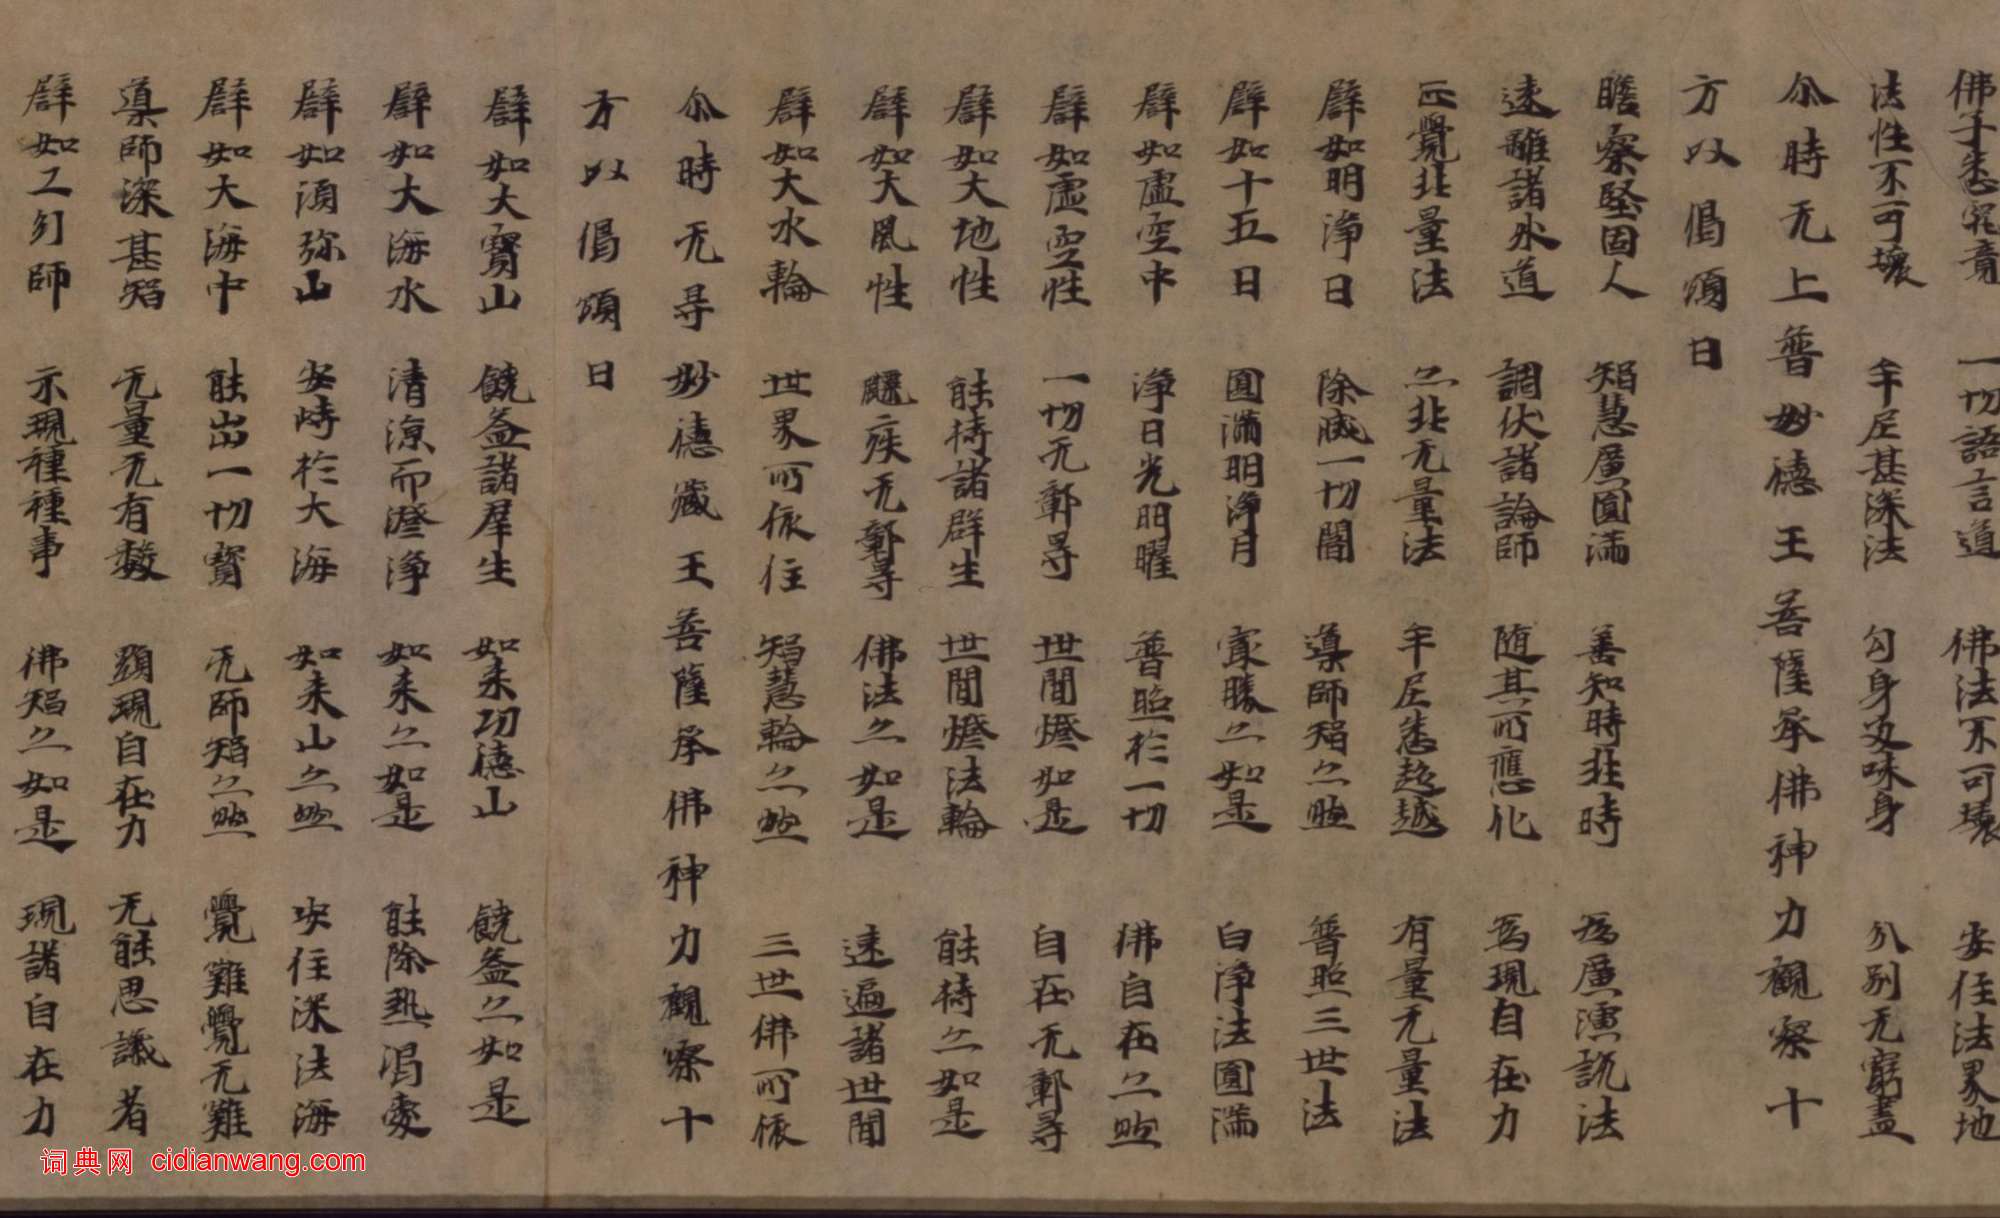 佛子悉究竟 一切語言道 佛法不可壞 安住法界地
法性不可壞 牟尼甚深法 勾身及味身 分别无窮盡
尒時无上普妙德王菩薩承佛神力觀察十
方以偈頌曰
瞻察堅固人 智慧廣圓滿 善知時非時 為廣演說法
遠離諸外道 調伏諸論師 随其所應化 為現自在力
正覺非量法 亦非无量法 牟尼悉超越 有量无量法
辟如明淨日 除滅一切闇 導師智亦然 普照三世法
辟如十五日 圓滿明淨月 寂勝亦如是 白淨法圓滿
辟如虛空中 淨日光明曜 普照於一切 佛自在亦然
辟如虛空性 一切无鄣㝵 世間燈如是 自在无鄣㝵
辟如大地性 能持諸群生 世間燈法輪 能持亦如是
辟如大風性 飄疾无鄣㝵 佛法亦如是 速遍諸世間
辟如大水輪 世界所依住 智慧輪亦然 三世佛所依
尒時无㝵妙德藏王菩薩承佛神力觀察十
方以偈頌曰
辟如大寶山 饒益諸羣生 如来功德山 饒益亦如是
辟如大海水 清涼而澄淨 如来亦如是 能除熱渴愛
辟如須弥山 安峙於大海 如来山亦然 安住深法海
辟如大海中 能出一切寶 无師智亦然 覺難覺无難
導師深甚智 无量无有數 顯現自在力 无能思議者
辟如工幻師 示現種種事 佛智亦如是 現諸自在力
词典网 cidianwang.com